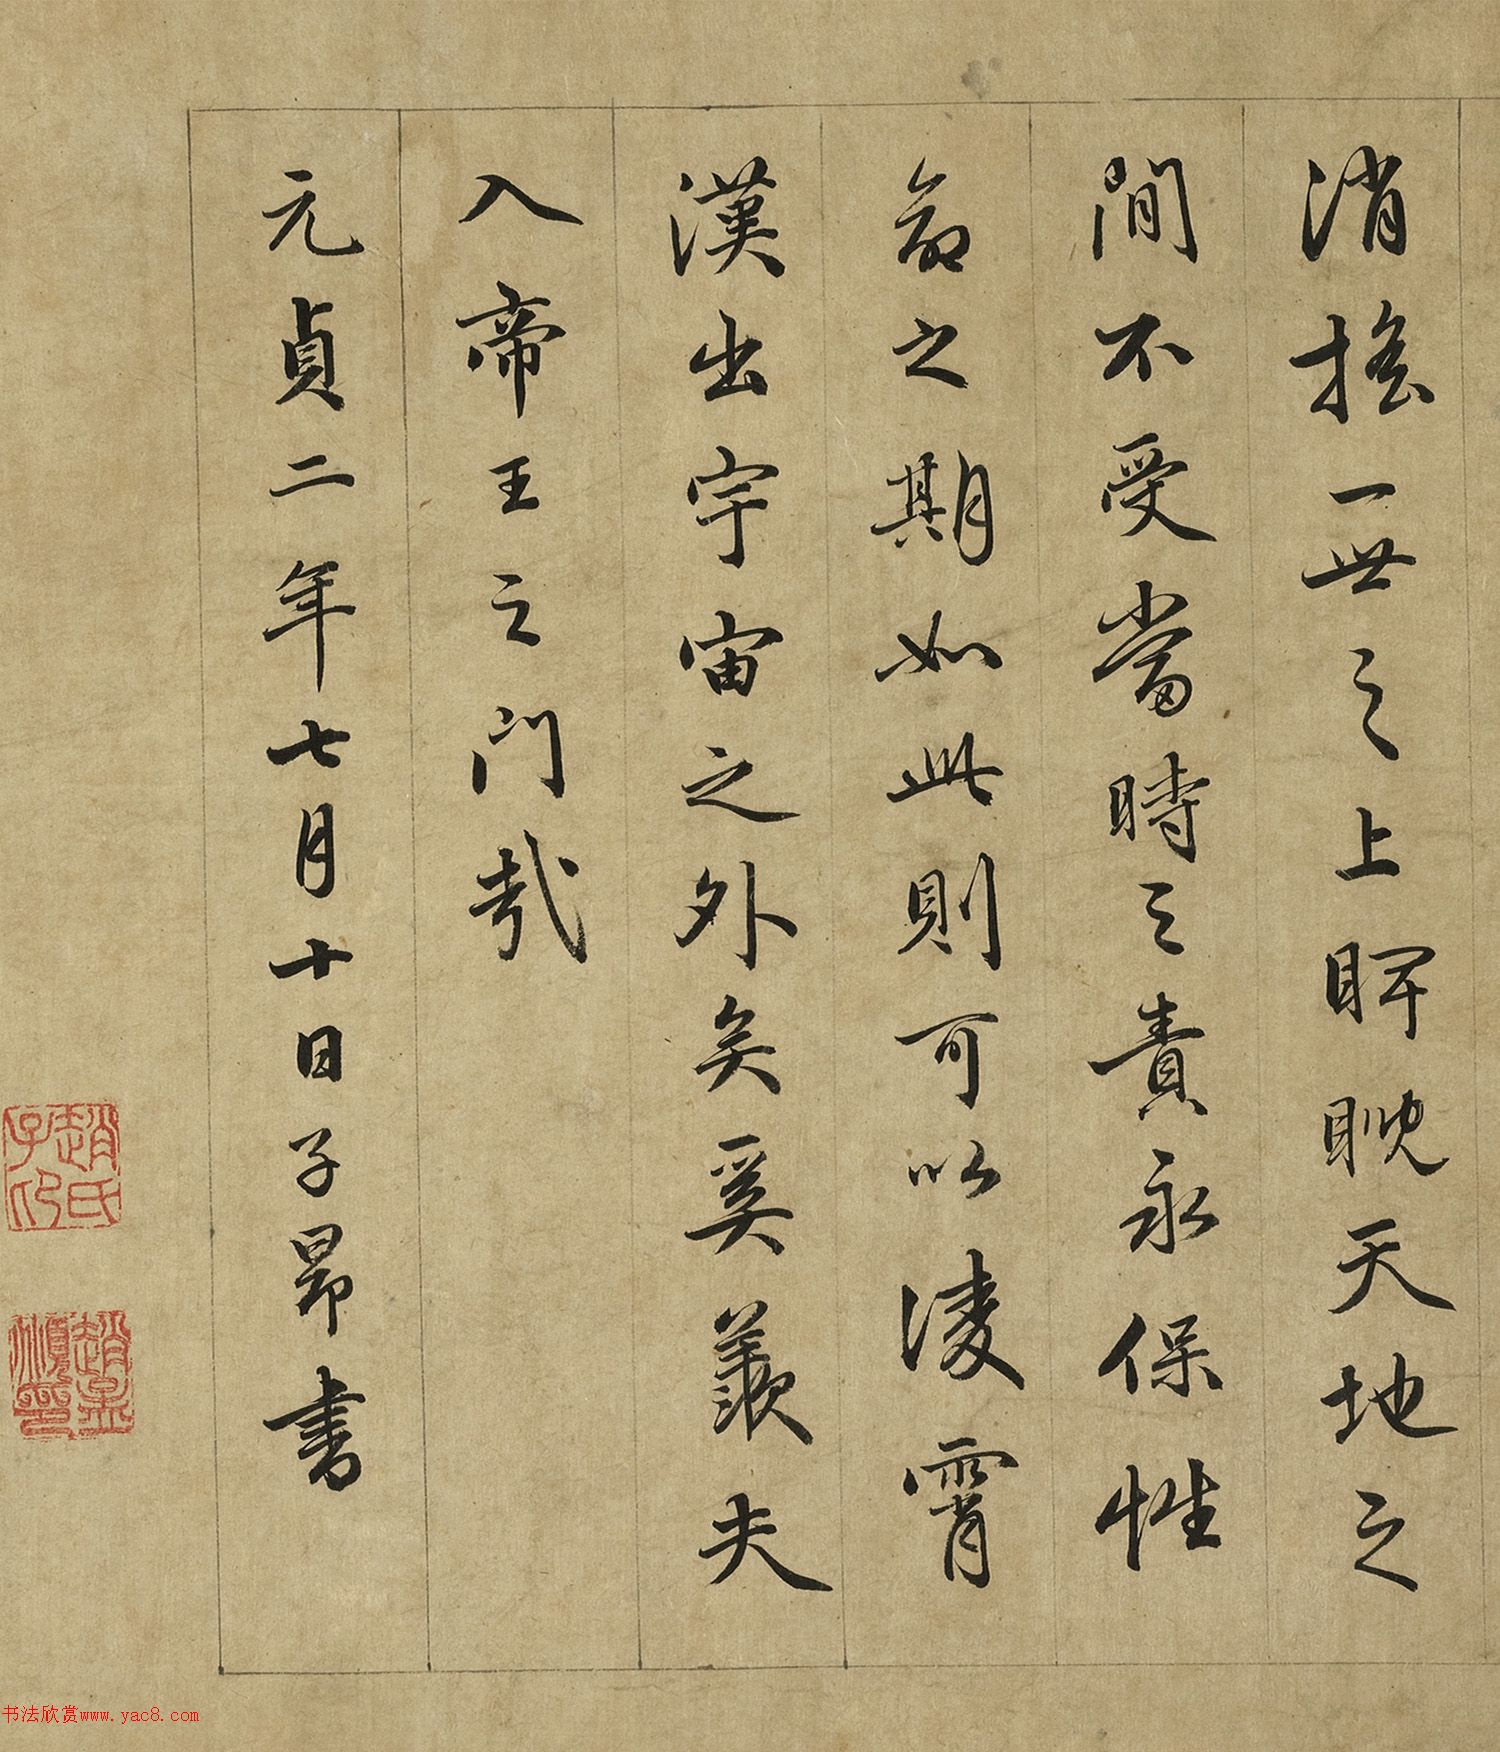 消搖一世之上睥睨天地之
間不受當時之責永保性
命之期如此則可以凌霄
漢出宇宙之外矣奚羨夫
入帝王之門哉
元貞二年七月十日子昂書
趙氏子印
趙孟頫印
书法欣赏www.yac8.com